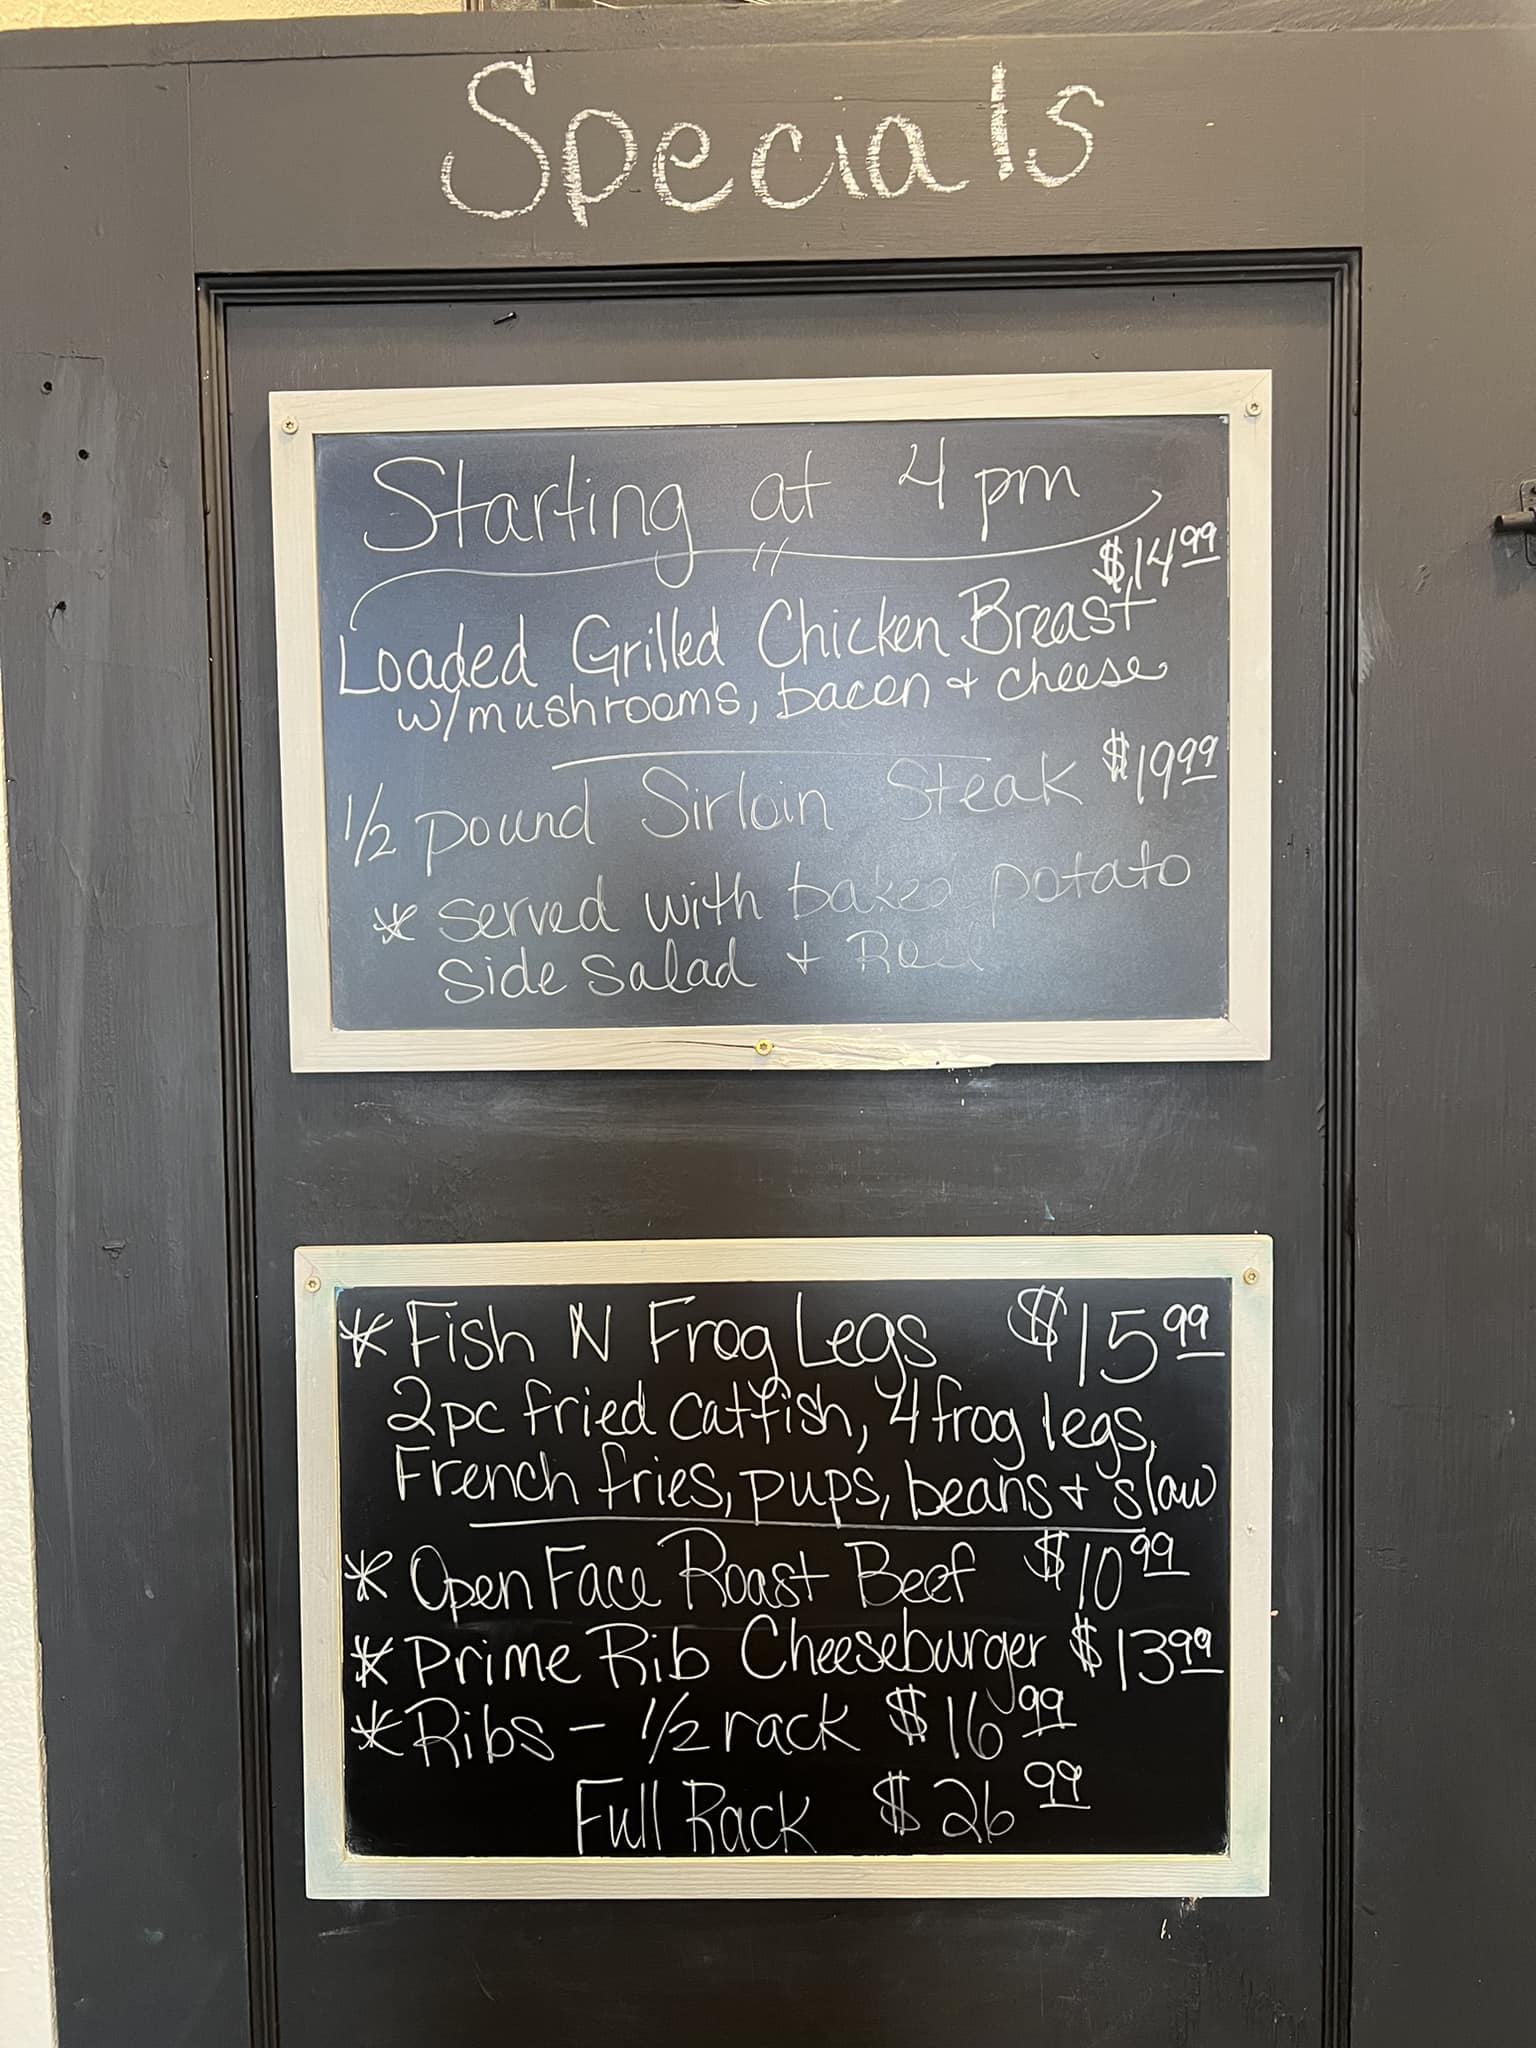 Specials
Starting at 4 pm
$14.99
Loaded Grilled Chicken Breast
w/mushrooms, bacon + cheese
1/2 pound Sirloin Steak $19.99
* served with baked potato
side salad + Roll
* Fish N Frog Legs $15.99
2pc fried catfish, 4 frog legs,
French fries, pups, beans + slaw
* Open Face Roast Beef $10.99
* Prime Rib Cheeseburger $13.99
* Ribs - 1/2 rack $16.99
Full Rack $26.99